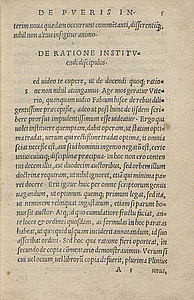 DE PVERIS IN- 5
terim noua quædam occurrunt commẽtanti, differentiq;,
nihil non alteri infigitur animo.
DE RATIONE INSTITV-
endi discipulos.
ed uideo te cupere, ut de docendi quoq; ratio-
ne non nihil attingamus. Age mos geratur Vite-
rio, quanquam uideo Fabium hisce de rebus dili-
gentissime præcepisse, adeo ut post hunc de ijsdem
scribere, prorsus impudentissimum esse uideatur. Ergo qui
uolet instituere quempiam, dabit operam, ut statim optima
tradat, uerum qui rectissime tradat optima, is omnia sciat
necesse est, aut si id hominis ingenio negatum est, certe
uniuscuiusque disciplinæ præcipua. In hoc non ero con-
tentus decem illis aut duodecim autoribus, sed orbem il-
lum doctrinæ requiram, ut nihil ignoret etiam qui minima pa-
ret docere. Erit igitur huic per omne scriptorum genus
uagandum, ut optimum quemque primum legat, sed ita,
ut neminem relinquat ingustatum, etiam si parum bonus
sit autor. Atq; id quo cumulatiore fructu faciat, an-
te locos & ordines quosdam, ac formulas in hoc para-
tas habeat, ut quicquid usquam inciderit annotandum, id suo
asscribat ordini. Sed hoc qua ratione fieri oporteat, in
secundo de copia cõmentario demonstrauimus. Verum si
cui uel ocium, uel librorum copia defuerit, plurima Plinius
A 5 unus,